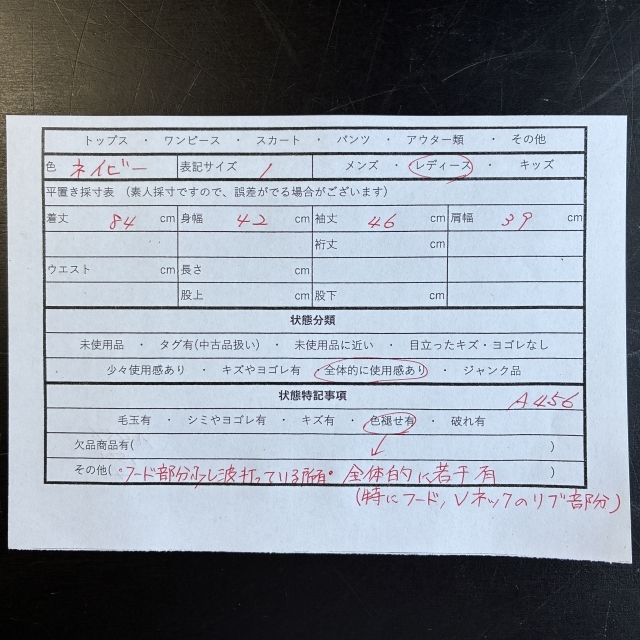 トップス ・ ワンピース ・ スカート ・ パンツ ・ アウター類 ・ その他
色 ネイビー 表記サイズ 1 メンズ ・ レディース ・ キッズ
平置き採寸表 (素人採寸ですので、誤差がでる場合がございます)
着丈 84 cm 身幅 42 cm 袖丈 46 cm 肩幅 39 cm
裄丈 cm
ウエスト cm 長さ cm
股上 cm 股下 cm
状態分類
未使用品 ・ タグ有(中古品扱い) ・ 未使用品に近い ・ 目立ったキズ・ヨゴレなし
少々使用感あり ・ キズやヨゴレ有 ・ 全体的に使用感あり ・ ジャンク品
状態特記事項 A456
毛玉有 ・ シミやヨゴレ有 ・ キズ有 ・ 色褪せ有 ・ 破れ有
欠品商品有( )
その他(・フード部分少し波打っている所有・全体的に若干有 )
(特にフード,Vネックのリブ部分)